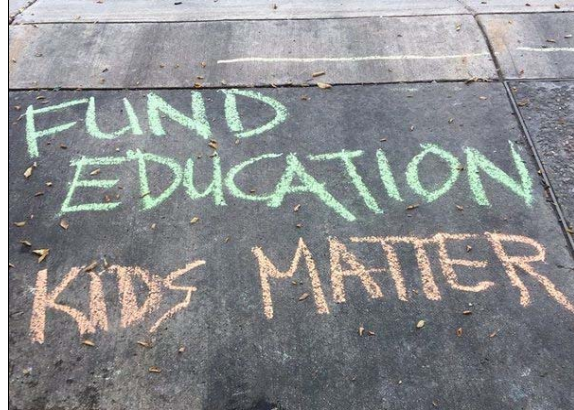 FUND
EDUCATION
KIDS MATTER